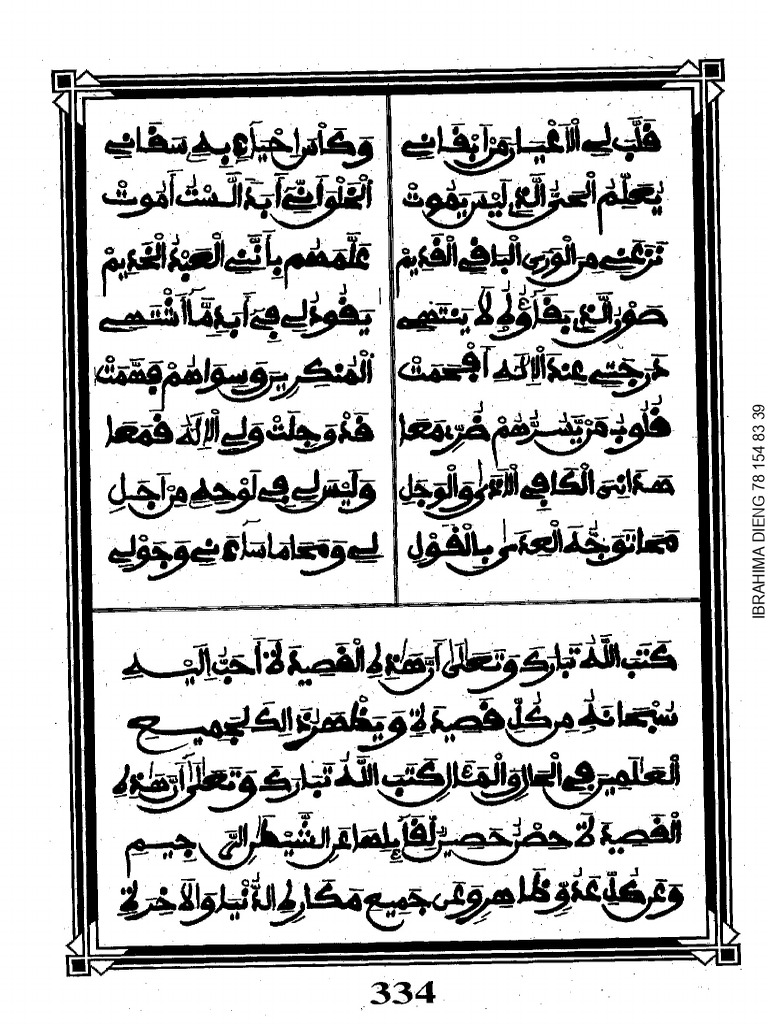 قَلَّبَ لِي الْأَغْيَارَ مَنْ أَبْقَانِي وَكَأْسَ إِحْيَاءٍ بِهِ سَقَانِي
يُعَلِّمُ الْحَيُّ الَّذِي لَيْسَ يَمُوتْ الْخَلْقَ أَنِّي أَبَدًا لَسْتُ أَمُوتْ
نَزَعَنِي مِنَ الْوَرَى الْبَاقِي الْقَدِيمْ عَلَّمَهُمْ بِأَنَّنِي الْعَبْدُ الْخَدِيمْ
صَوْنُ الَّذِي بَقَاؤُهُ لَا يَنْتَهِي يَقُودُ لِي فِي أَبَدٍ مَا أَشْتَهِي
دَرَجَتِي عِنْدَ الْإِلَٰهِ أَفْحَمَتْ الْمُنْكِرِينَ وَسِوَاهُمْ فَهَّمَتْ
قُلُوبُ مَنْ يَسُرُّهُمْ ضُرِّي مَعَا قَدْ وَجِلَتْ وَلِي الْإِلَٰهُ قَمَعَا
هَدَانِيَ الْكَافِي الْأَذَىٰ وَالْوَجَلِ وَلَيْسَ لِي فِي لَوْحِهِ مِنْ أَجَلِ
مَحَا تَوَجُّهَ الْعِدَىٰ بِالْقَوْلِ لِي وَمَحَا مَا سَاءَنِي وَجَوْلِي
كَتَبَ اللَّهُ تَبَارَكَ وَتَعَالَىٰ أَنَّ هَٰذِهِ الْقَصِيدَةَ أَحَبُّ إِلَيْهِ
سُبْحَانَهُ مِنْ كُلِّ قَصِيدَةٍ وَيُظْهِرُ ذَٰلِكَ لِجَمِيعِ
الْعَٰلَمِينَ فِي الْحَالِ وَالْمَآلِ كَتَبَ اللَّهُ تَبَارَكَ وَتَعَالَىٰ أَنَّ هَٰذِهِ
الْقَصِيدَةَ حِصْنٌ حَصِينٌ لِقَائِلِهَا عَنِ الشَّيْطَٰنِ الرَّجِيمِ
وَعَنْ كُلِّ عَدُوٍّ ظَاهِرٍ وَعَنْ جَمِيعِ مَكَارِهِ الدُّنْيَا وَالْآخِرَةِ
334
IBRAHIMA DIENG 78 154 83 39